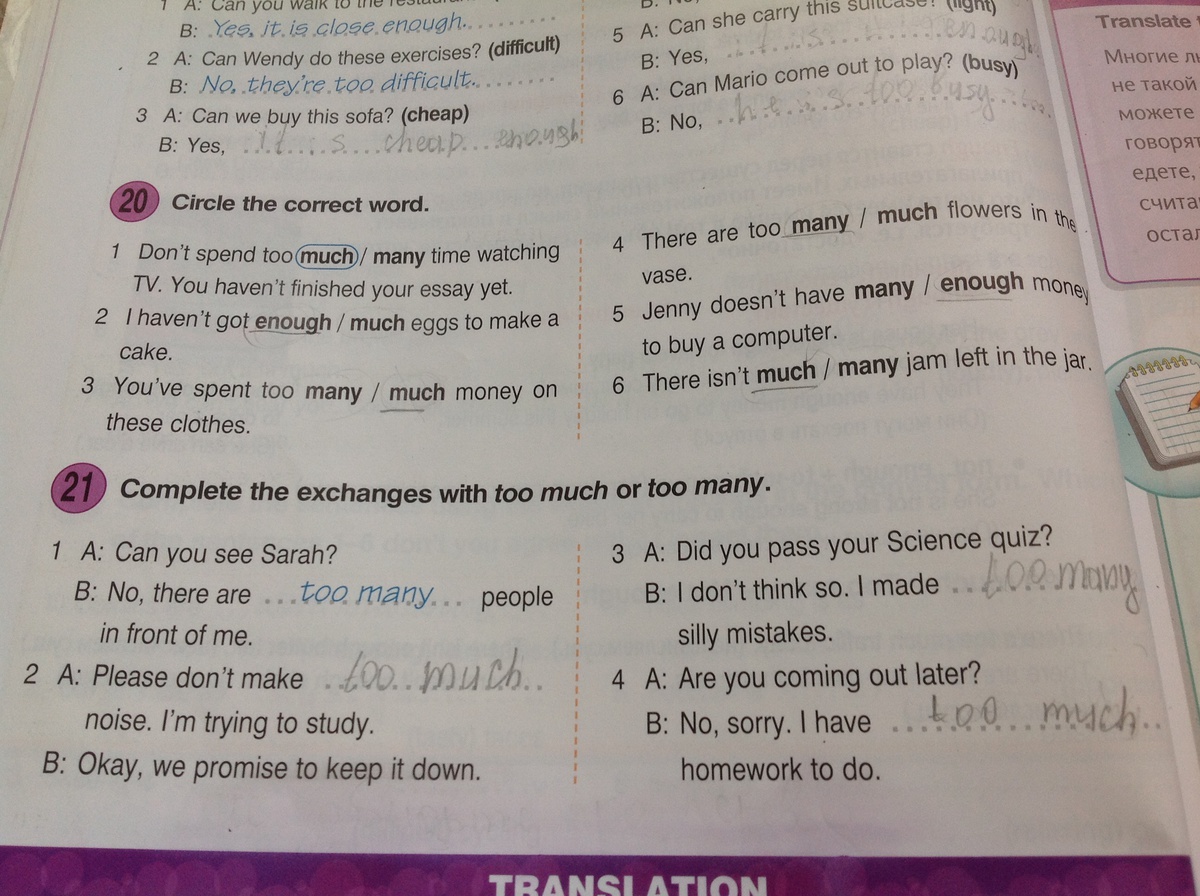 1 A: Can you walk to the
B: Yes, it is close enough.
2 A: Can Wendy do these exercises? (difficult)
B: No, they're too difficult.
3 A: Can we buy this sofa? (cheap)
B: Yes, It is cheap enough
B: No,
5 A: Can she carry this suitcase? (light)
B: Yes, it is enough
6 A: Can Mario come out to play? (busy)
B: No, he is too busy
20 Circle the correct word.
1 Don't spend too much / many time watching
TV. You haven't finished your essay yet.
2 I haven't got enough / much eggs to make a
cake.
3 You've spent too many / much money on
these clothes.
4 There are too many / much flowers in the
vase.
5 Jenny doesn't have many / enough money
to buy a computer.
6 There isn't much / many jam left in the jar.
21 Complete the exchanges with too much or too many.
1 A: Can you see Sarah?
B: No, there are too many people
in front of me.
2 A: Please don't make too much
noise. I'm trying to study.
B: Okay, we promise to keep it down.
3 A: Did you pass your Science quiz?
B: I don't think so. I made too many
silly mistakes.
4 A: Are you coming out later?
B: No, sorry. I have too much
homework to do.
Translate
Многие
не такой
можете
говорят
едете,
TRANSLATION